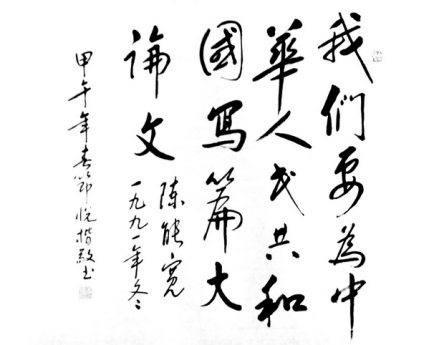 我們要為中
華人民共和
國寫篇大
論文
陈能宽
一九九一年冬
甲午年春節悦楷敬书